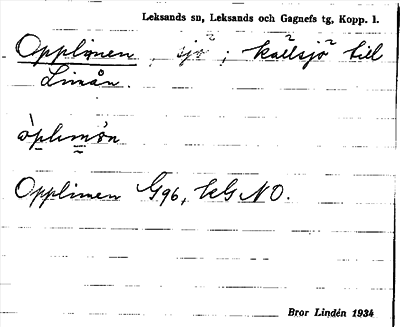 Leksands sn, Leksands och Gagnefs tg, Kopp. l.
Opplimen, sjö; källsjö till
Limån.
òplimǝn
Opplimen G96, kG NO.
Bror Lindén 1934